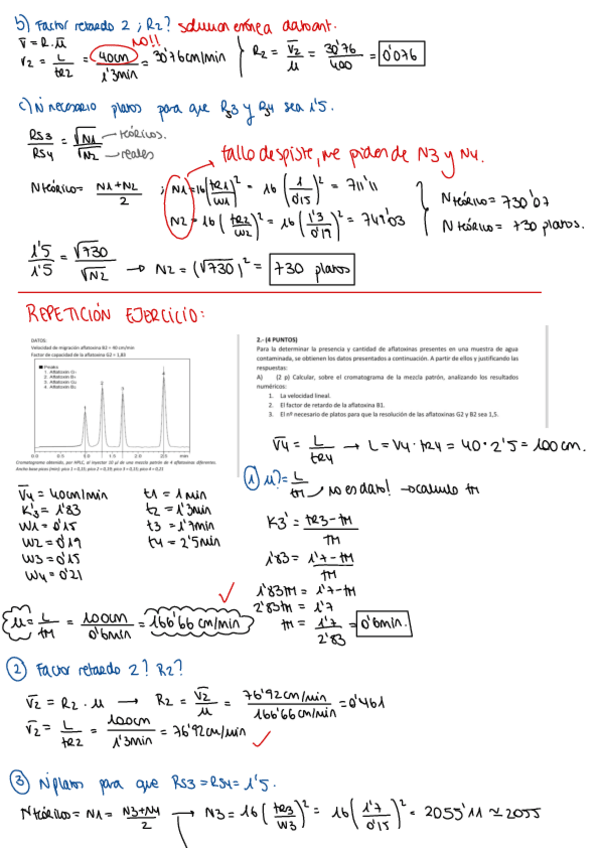 b) Factor retardo 2 ¿R2? solución errónea dato ant.
V̄ = R.μ̄ NO!!
V2 = L/tR2 = 40cm/1'3min = 30'76cm/min } R2 = V̄2/μ = 30'76/400 = 0'076
c) N necesario platos para que Rs3 y Rs4 sea 1'5.
Rs3/Rs4 = √N1/√N2 teóricos. reales
fallo despiste, me piden de N3 y N4.
N teórico = N1+N2/2 ; N1 = 16(tR1/W1)² = 16(1/0'15)² = 711'11
N2 = 16(tR2/W2)² = 16(1'3/0'19)² = 749'03
N teórico = 730'07
N teórico = 730 platos.
1'5/1'5 = √730/√N2 → N2 = (√730)² = 730 platos
REPETICIÓN EJERCICIO:
DATOS:
Velocidad de migración aflatoxina B2 = 40 cm/min
Factor de capacidad de la aflatoxina G2 = 1,83
Picos:
1. Aflatoxin G₂
2. Aflatoxin G₁
3. Aflatoxin B₂
4. Aflatoxin B₁
1 2 3 4
0.0 0.5 1.0 1.5 2.0 2.5 min
Cromatograma obtenido, por HPLC, al inyectar 10 μl de una mezcla patrón de 4 aflatoxinas diferentes.
Ancho base picos (min): pico 1 = 0,15; pico 2 = 0,19; pico 3 = 0,15; pico 4 = 0,21
2.- (4 PUNTOS)
Para la determinar la presencia y cantidad de aflatoxinas presentes en una muestra de agua
contaminada, se obtienen los datos presentados a continuación. A partir de ellos y justificando las
respuestas:
A) (2 p) Calcular, sobre el cromatograma de la mezcla patrón, analizando los resultados
numéricos:
1. La velocidad lineal.
2. El factor de retardo de la aflatoxina B1.
3. El nº necesario de platos para que la resolución de las aflatoxinas G2 y B2 sea 1,5.
V̄4 = L/tR4 → L = V4 · tR4 = 40 · 2'5 = 100 cm.
1) μ? = L/tM no es dato! → calculo tM
V̄4 = 40cm/min t1 = 1 min
K'3 = 1'83 t2 = 1'3min
W1 = 0'15 t3 = 1'7min
W2 = 0'19 t4 = 2'5min
W3 = 0'15
W4 = 0'21
K3' = tR3 - tM/TM
1'83 = 1'7 - tM/TM
1'83tM = 1'7 - tM
2'83tM = 1'7
tM = 1'7/2'83 = 0'6min.
μ = L/tM = 100cm/0'6min = 166'66 cm/min
2 Factor retardo 2? R2?
V̄2 = R2 · μ → R2 = V̄2/μ = 76'92cm/min/166'66cm/min = 0'461
V̄2 = L/tR2 = 100cm/1'3min = 76'92cm/min
3 Nplatos para que Rs3 = Rs4 = 1'5.
N teóricos = N1 = N3+N4/2 → N3 = 16(tR3/W3)² = 16(1'7/0'15)² = 2055'11 ≃ 2055